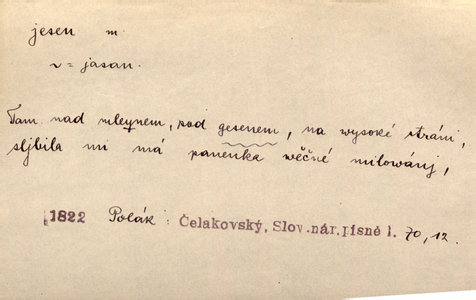 jesen m.
v = jasan.
Tam nad mleynem, pod gesenem, na wysoké stráni,
sljbila mi má panenka wěčné milowánj,
1822 Polák: Čelakovský, Slov.nár.písně I. 70, 12.